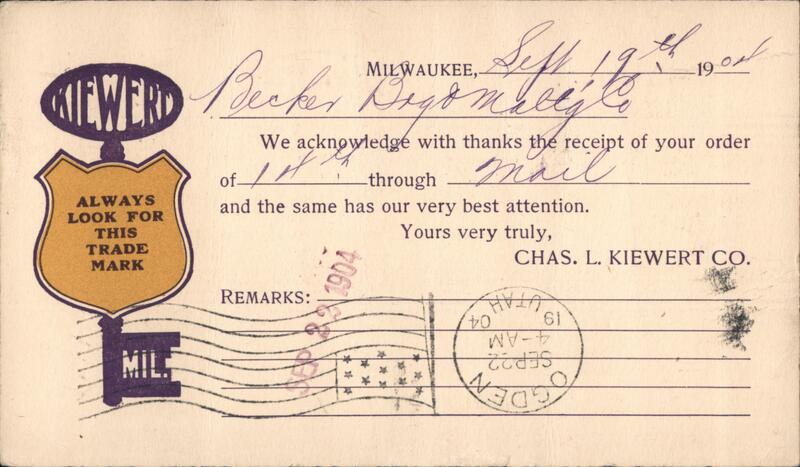 MILWAUKEE, Sept. 19th 1904
KIEWERT
Becker Co
We acknowledge with thanks the receipt of your order
of 14th through Mail
and the same has our very best attention.
Yours very truly,
CHAS. L. KIEWERT CO.
ALWAYS
LOOK FOR
THIS
TRADE
MARK
REMARKS:
MIL.
SEP 23 1904
OGDEN
SEP 22
4-AM
1904
UTAH